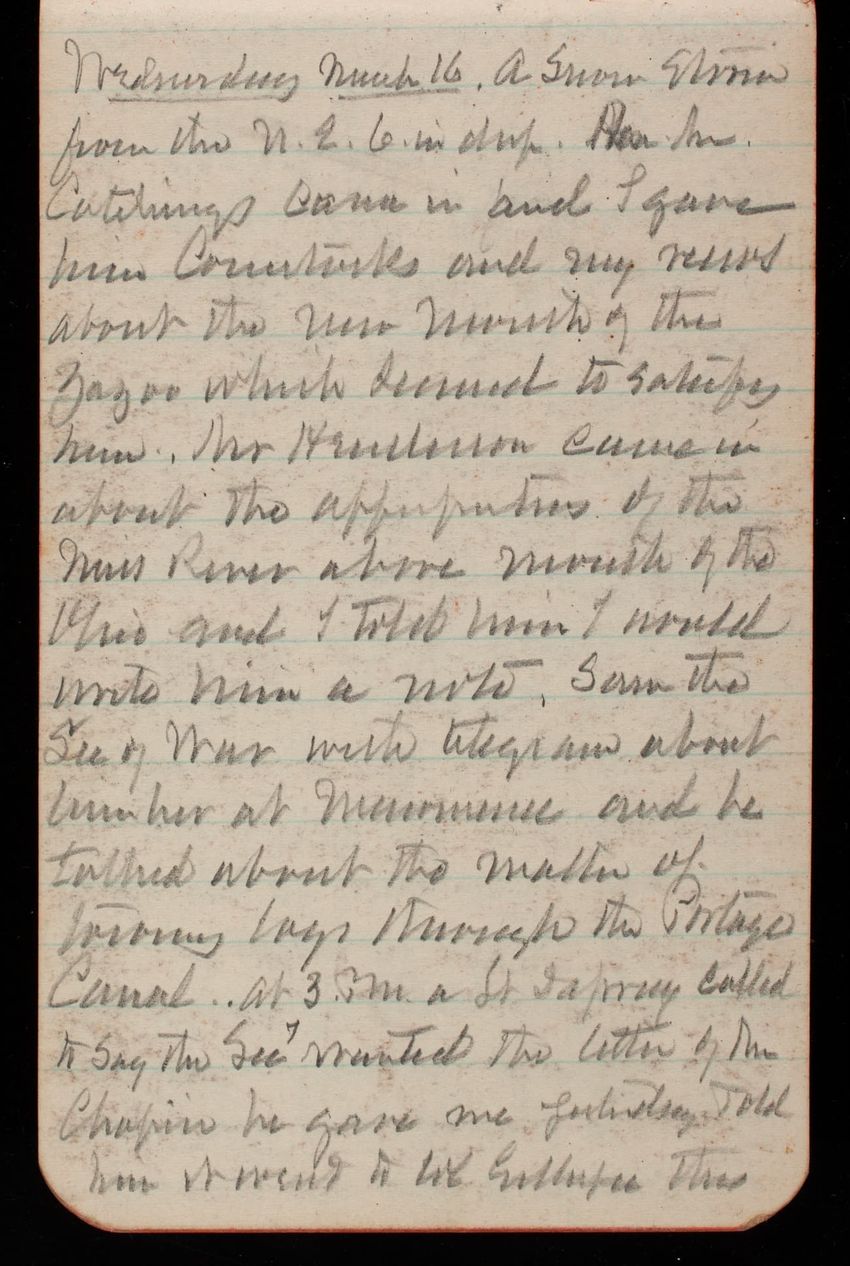 Wednesday March 16. A Snow Storm
from the N.E. 6 in deep. Hon Mr.
Catchings came in and I gave
him Comstocks and my views
about the new Mouth of the
Yazoo which seemed to satisfy
him. Mr Henderson came in
about the appropriations of the
Miss River above mouth of the
Ohio and I told him I would
write him a note. Saw the
Sec of War with telegram about
lumber at Menominee and he
talked about the matter of
towing logs through the Portage
Canal.. at 3 P.M. a Lt called
to say the Secy wanted the letter of Mr
Chapin he gave me yesterday. Told
him it went to Col Gillespie this